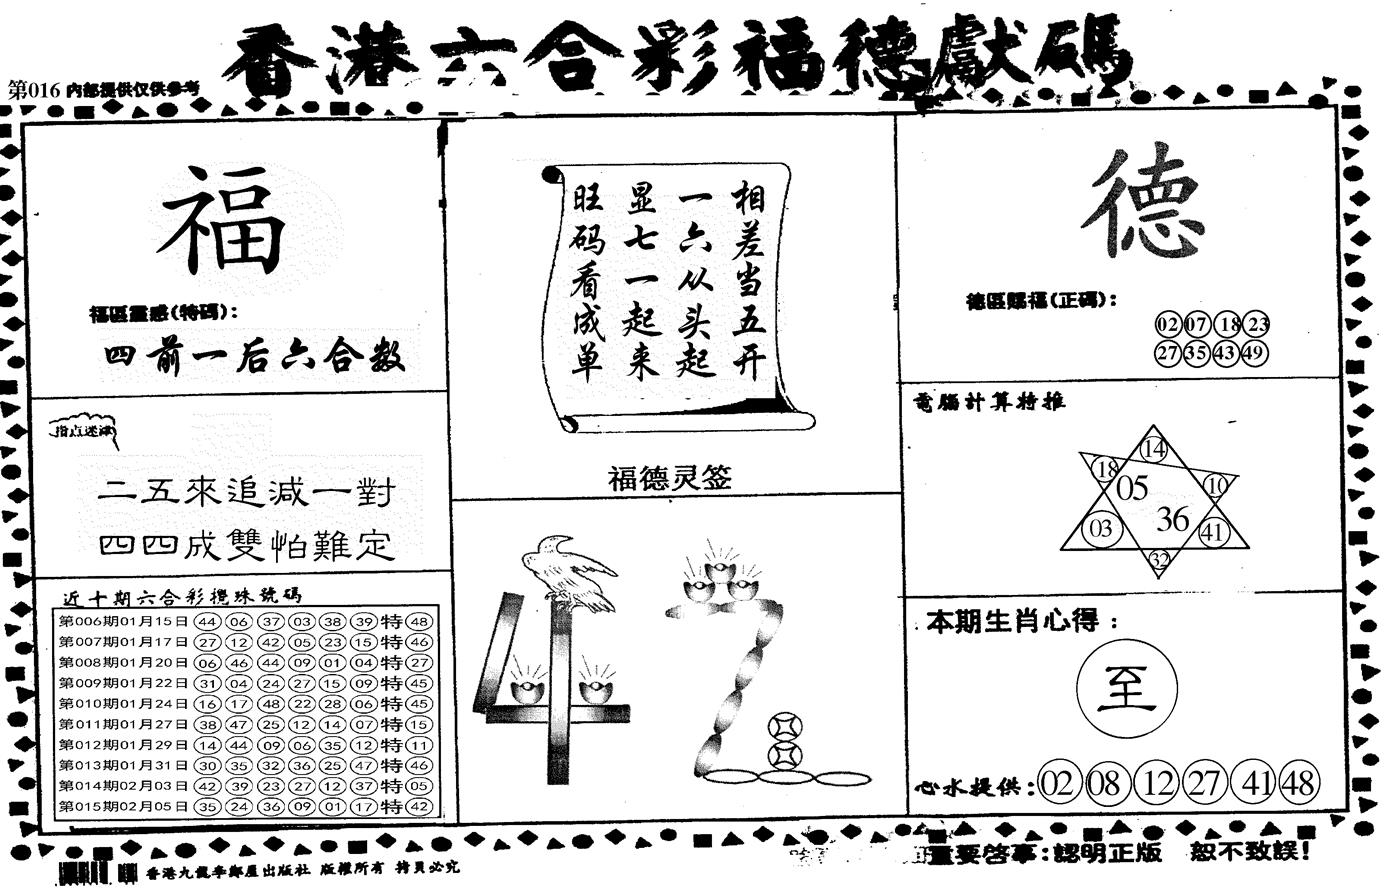 香港六合彩福德獻碼
第016 内部提供仅供参考
福
福區靈感(特碼):
四前一后六合数
指点迷津
二五來追减一對
四四成雙怕難定
近十期六合彩攪珠號碼
第006期01月15日 44 06 37 03 38 39 特 48
第007期01月17日 27 12 42 05 23 15 特 46
第008期01月20日 06 46 44 09 01 04 特 27
第009期01月22日 31 04 24 27 15 09 特 45
第010期01月24日 16 17 48 22 28 06 特 45
第011期01月27日 38 47 25 12 14 07 特 15
第012期01月29日 14 44 09 06 35 12 特 11
第013期01月31日 30 35 32 36 25 47 特 46
第014期02月03日 42 39 23 27 12 37 特 05
第015期02月05日 35 24 36 09 01 17 特 42
相差当五开
一六从头起
显七一起来
旺码看成单
福德灵签
德
德區賜福(正碼):
02 07 18 23
27 35 43 49
電腦計算特推
14
18
05
10
36
03
41
32
本期生肖心得:
至
心水提供: 02 08 12 27 41 48
重要啓事:認明正版 恕不致誤!
版權所有 拷貝必究